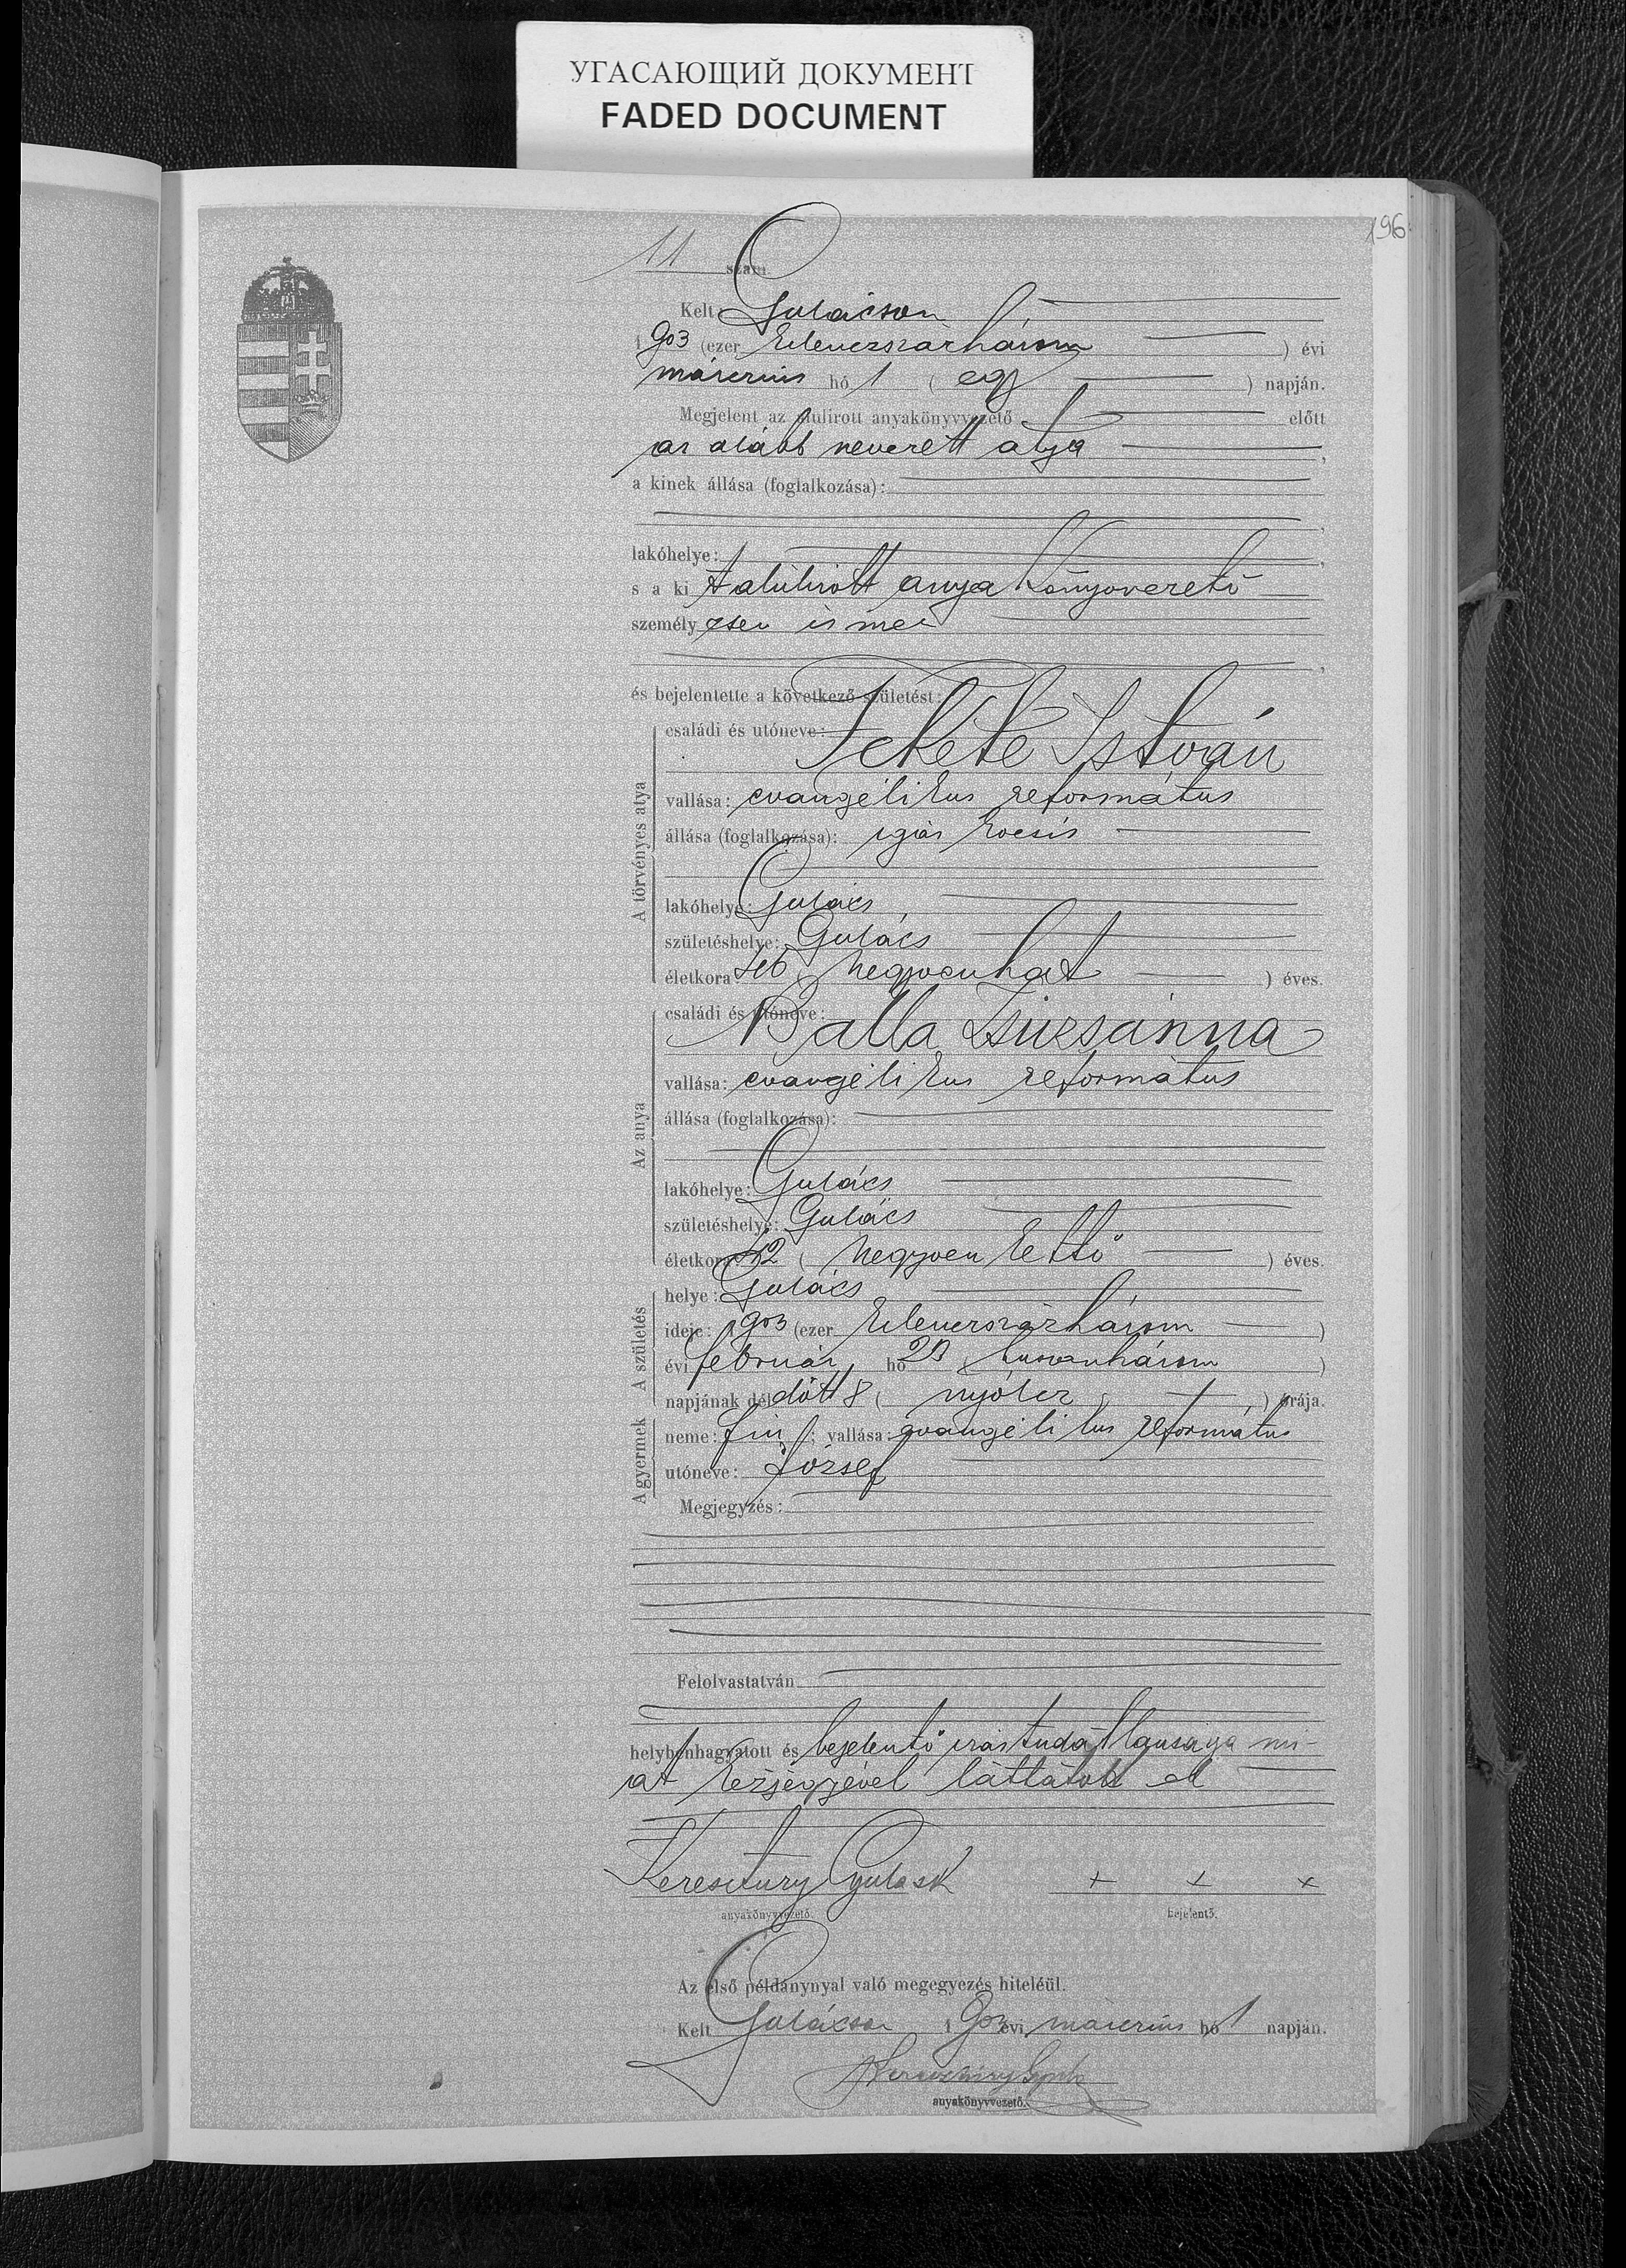 УГАСАЮЩИЙ ДОКУМЕНТ
FADED DOCUMENT
196
11 szám.
Kelt Gulácson
1903 (ezer kilenczszázhárom ) évi
márczius hó 1 ( egy ) napján.
Megjelent az alulirott anyakönyvvezető előtt
az alább nevezett atya ,
a kinek állása (foglalkozása):
,
lakóhelye: ,
s a ki t alúlirott anyakönyvvezető
személyesen ismer
,
és bejelentette a következő születést:
A törvényes atya
családi és utóneve:
Fekete István
vallása: evangélikus református
állása (foglalkozása): igás kocsis
lakóhelye: Gulács
születéshelye: Gulács
életkora: 46 ( negyvenhat ) éves.
Az anya
családi és utóneve:
Balla Zsuzsánna
vallása: evangélikus református
állása (foglalkozása):
lakóhelye: Gulács
születéshelye: Gulács
életkora: 42 ( negyvenkettő ) éves.
A születés
helye: Gulács
ideje: 1903 (ezer kilenczszázhárom )
évi február hó 23 ( huszonhárom )
napjának délelőtt 8 ( nyolcz ) órája.
A gyermek
neme: fiú ; vallása: evangélikus református
utóneve: József
Megjegyzés:
Felolvastatván
helybenhagyatott és bejelentő irástudatlansága mi-
att kézjegyével láttatott el
Keresztury Gyula sk + + +
anyakönyvvezető. bejelentő.
Az első példánynyal való megegyezés hiteléül.
Kelt Gulácson 1903 évi márczius hó 1 napján.
Keresztury Gyula
anyakönyvvezető.